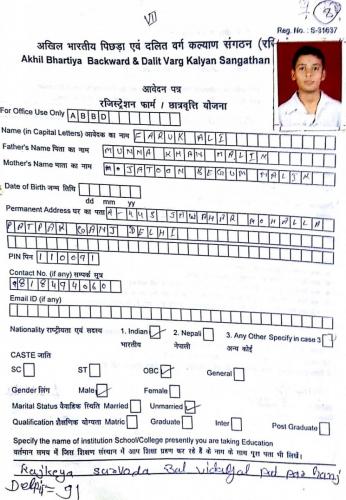 Reg. No. : S-31637
अखिल भारतीय पिछड़ा एवं दलित वर्ग कल्याण संगठन (रजि
Akhil Bhartiya Backward & Dalit Varg Kalyan Sangathan
आवेदन पत्र
रजिस्ट्रेशन फार्म / छात्रवृत्ति योजना
For Office Use Only A B B D
Name (in Capital Letters) आवेदक का नाम FARUK ALI
Father's Name पिता का नाम MUNNA KHAN MALIK
Mother's Name माता का नाम M. JATOON BEGUM MALIK
Date of Birth जन्म तिथि
dd mm yy
Permanent Address घर का पता A-448 JAWAHAR MOHALLA
PATPAR GANJ DELHI
PIN पिन 110091
Contact No. (if any) सम्पर्क सूत्र
9818494060
Email ID (if any)
Nationality राष्ट्रीयता एवं सदस्य 1. Indian 2. Nepali 3. Any Other Specify in case 3
भारतीय नेपाली अन्य कोई
CASTE जाति
SC ST OBC General
Gender लिंग Male Female
Marital Status वैवाहिक स्थिति Married Unmarried
Qualification शैक्षणिक योग्यता Matric Graduate Inter Post Graduate
Specify the name of institution School/College presently you are taking Education
वर्तमान समय में जिस शिक्षण संस्थान में आप शिक्षा ग्रहण कर रहे हैं के नाम के साथ पूरा पता भी लिखें।
Rajkeya sarvoda Bal vidyalya Pat par Ganj
Delhi-91